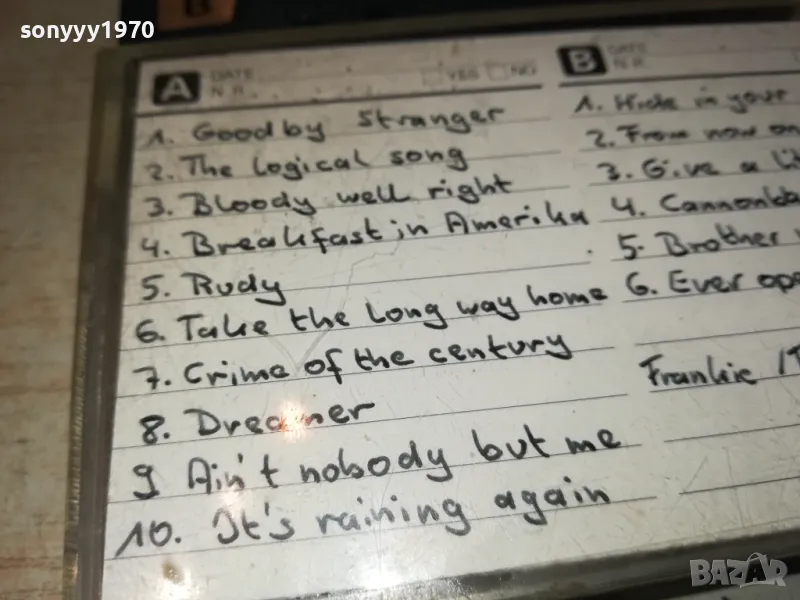 sonyyy1970
B
A DATE
N.R.
YES NO
1. Goodby stranger
2. The Logical song
3. Bloody well right
4. Breakfast in Amerika
5. Rudy
6. Take the Long way home
7. Crime of the century
8. Dreamer
9 Ain't nobody but me
10. It's raining again
B DATE
N.R.
1. Hide in your
2. From now on
3. Give a
4.
5. Brother
6. Ever
Frankie
BAZAR